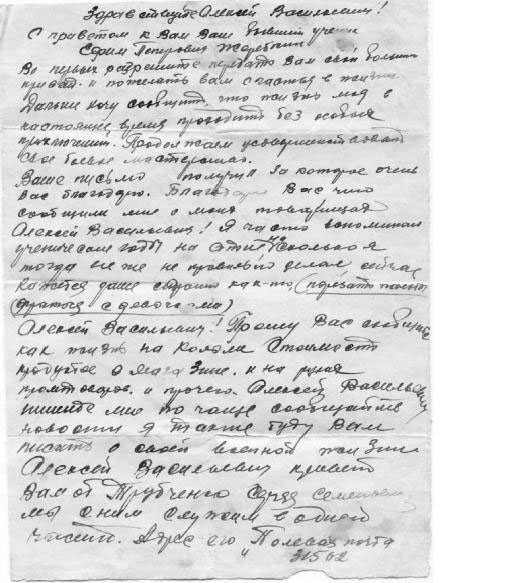 Здравствуйте Алексей Васильевич!
С приветом к Вам Ваш бывший ученик
Во первых разрешите передать Вам свой большой
привет и пожелать вам счастья в жизни.
Дальше хочу сообщить, что жизнь моя в
настоящее время проходит без особых
приключений. Продолжаем усовершенствовать
свое боевое мастерство.
Ваше письмо получил за которое очень
вас благодарю. Благодарю Вас что
сообщили мне о моих товарищах
Алексей Васильевич! Я часто вспоминаю
ученические годы на сколько я
тогда все же не правильно делал сейчас
кажется даже странно как-то
драться с девочками)
Алексей Васильевич! Прошу Вас сообщите
как жизнь на Стоимость
продуктов в магазине. и на рынке
промтоваров. и прочего. Алексей Васильевич
пишите мне по чаще сообщайте
новости я также буду Вам
писать о своей военной жизни
Алексей Васильевич привет
Вам от Трубченко
мы с ним служим в одной
части. Адрес его "Полевая почта
31562